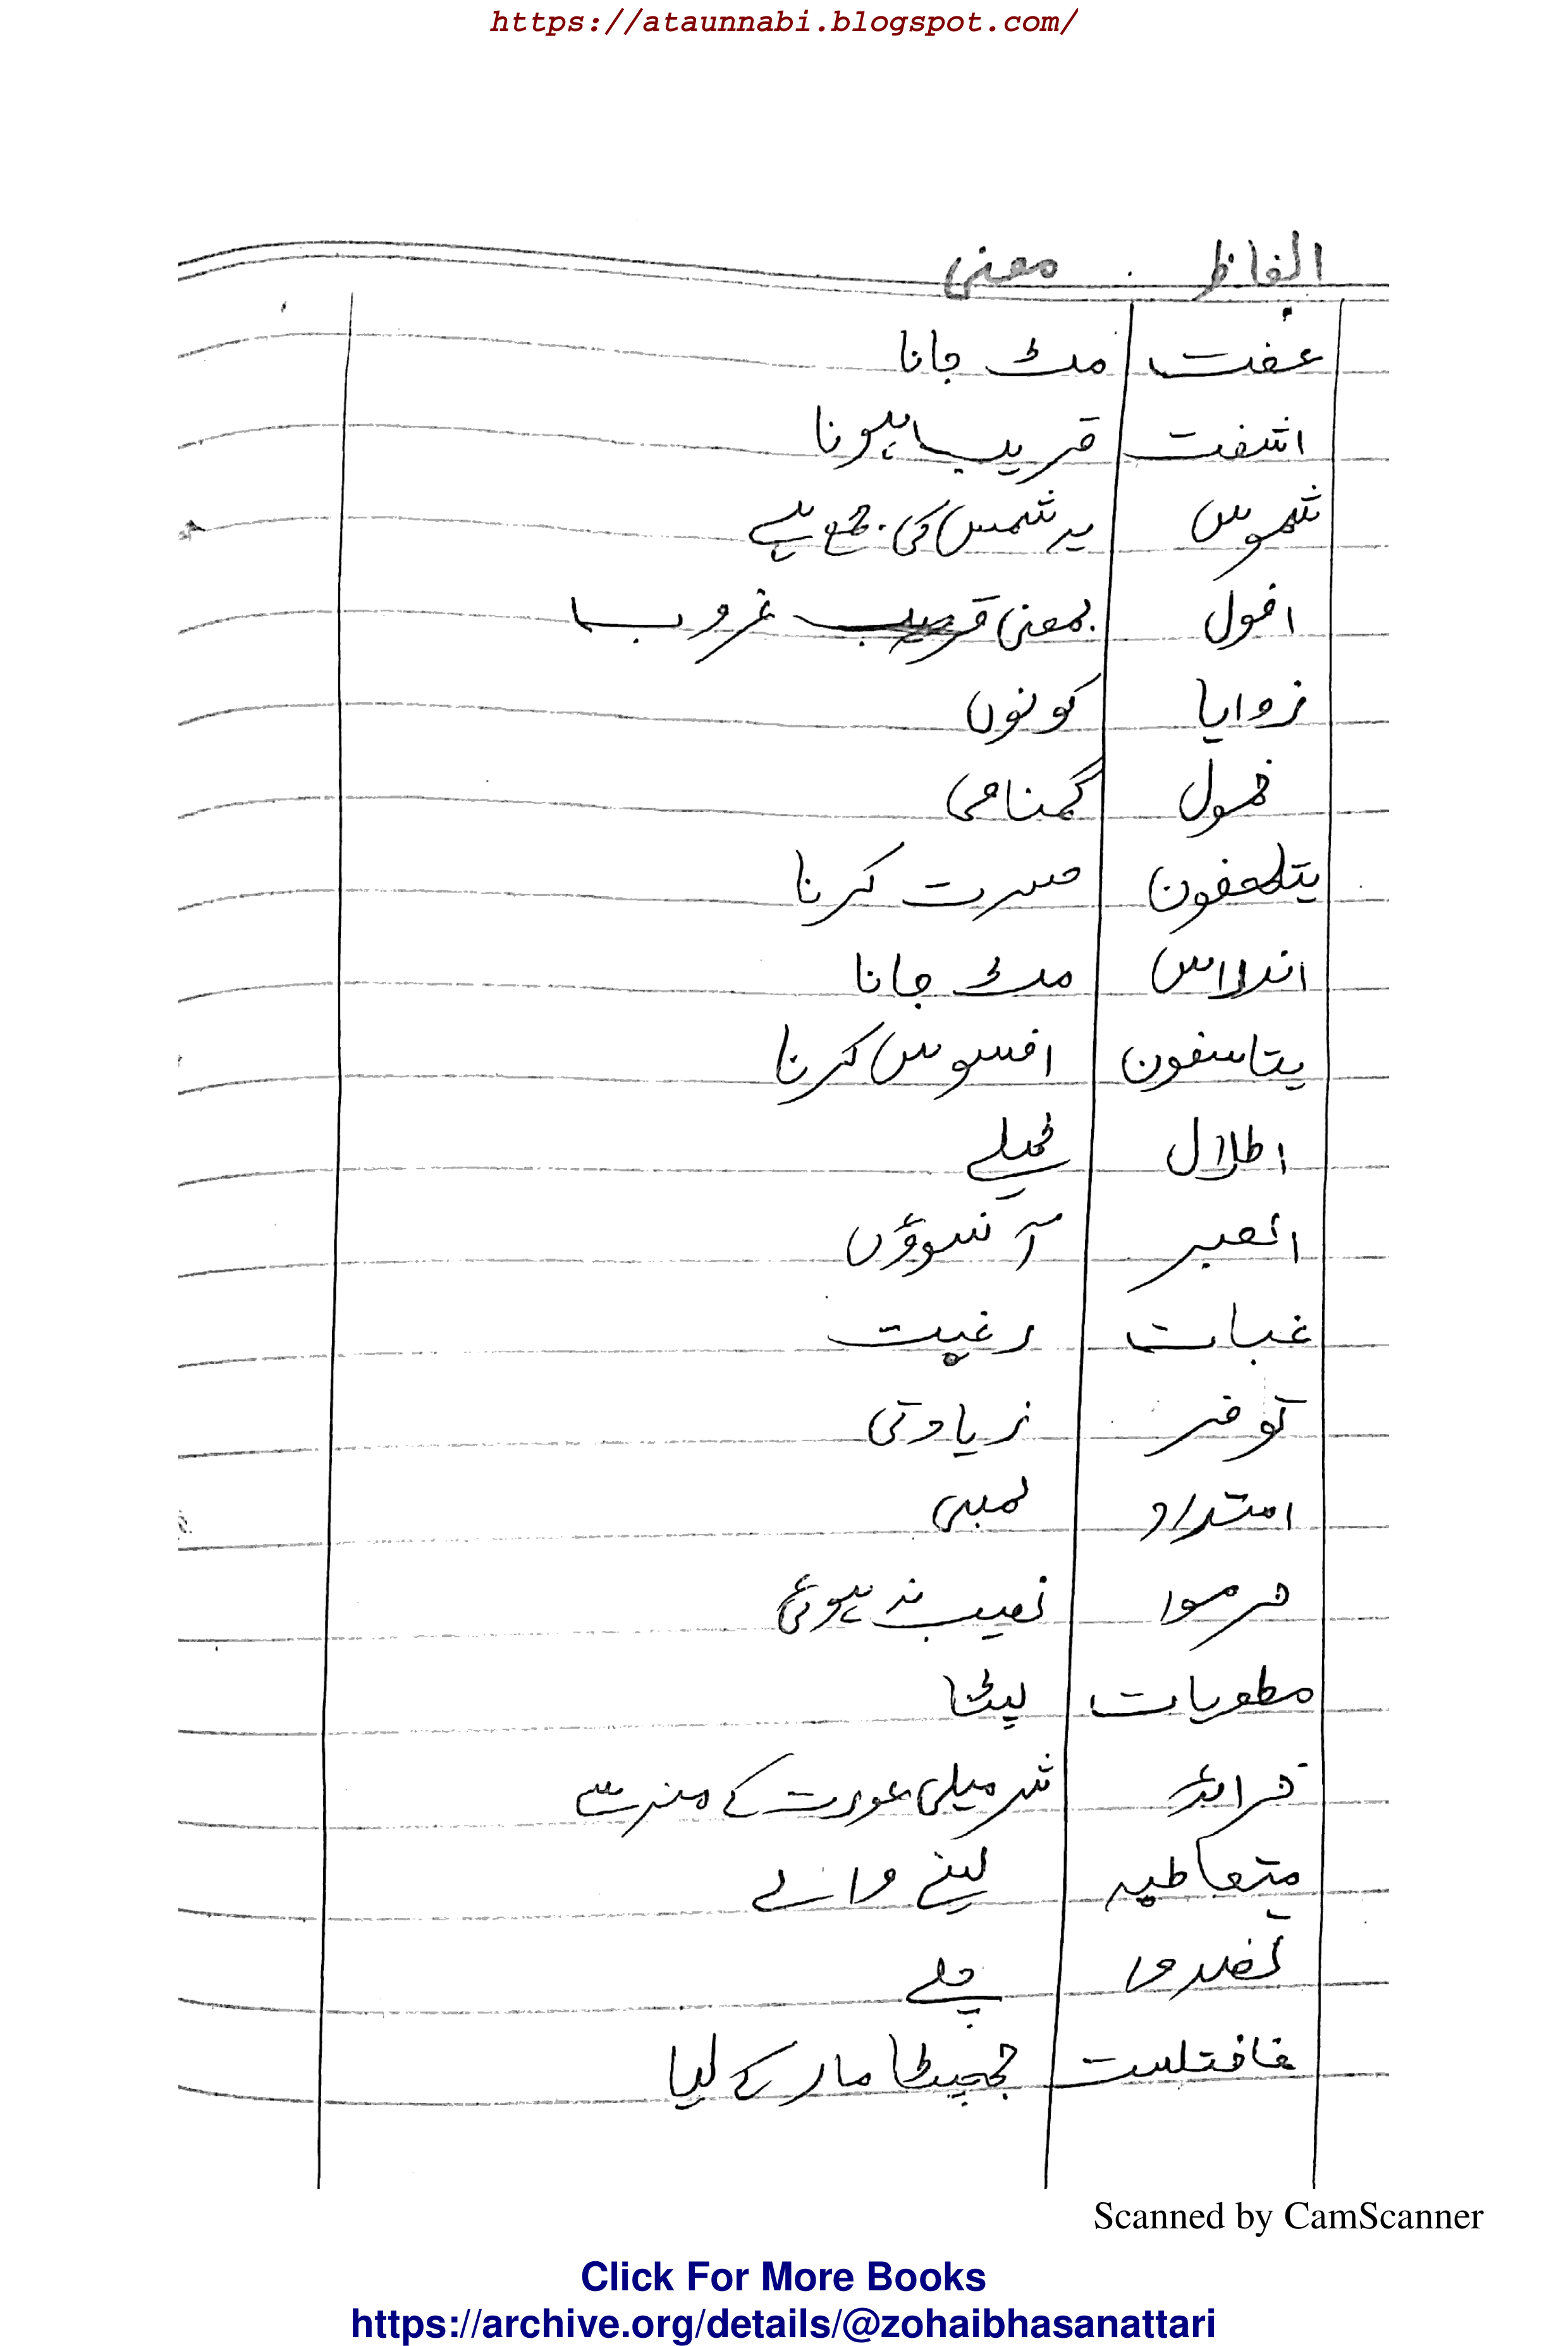 https://ataunnabi.blogspot.com/
الفاظ معنی
عفت مٹ جانا
اشفت قریب ہونا
شموس یہ شمس کی جمع ہے
افول بمعنی غروب
زوایا کونوں
خمول گمنامی
یتلھفون حسرت کرنا
اندراس مٹ جانا
یتاسفون افسوس کرنا
اطلال ٹیلے
العبر آنسوؤں
غبات رغبت
توفر زیادتی
امتداد لمبی
حرموا نصیب نہ ہوئی
مطویات لپٹنا
خرائد شرمیلی عورت کے منہ سے
متعاطیہ لینے والے
تصدوا چلے
فافتلست جھپٹا مار کے لیا
Scanned by CamScanner
Click For More Books
https://archive.org/details/@zohaibhasanattari